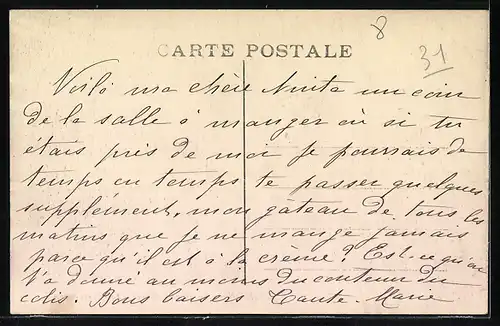 8
31
CARTE POSTALE
Voilà ma chère Anita un coin
de la salle à manger où si tu
étais près de moi je pourrais de
temps en temps te passer quelques
supplément, mon gâteau de tous les
matins que je ne mange jamais
parce qu'il est à la crème? Est-ce qu'on
t'a donné au moins du contenu du
colis. Bons baisers Tante Marie